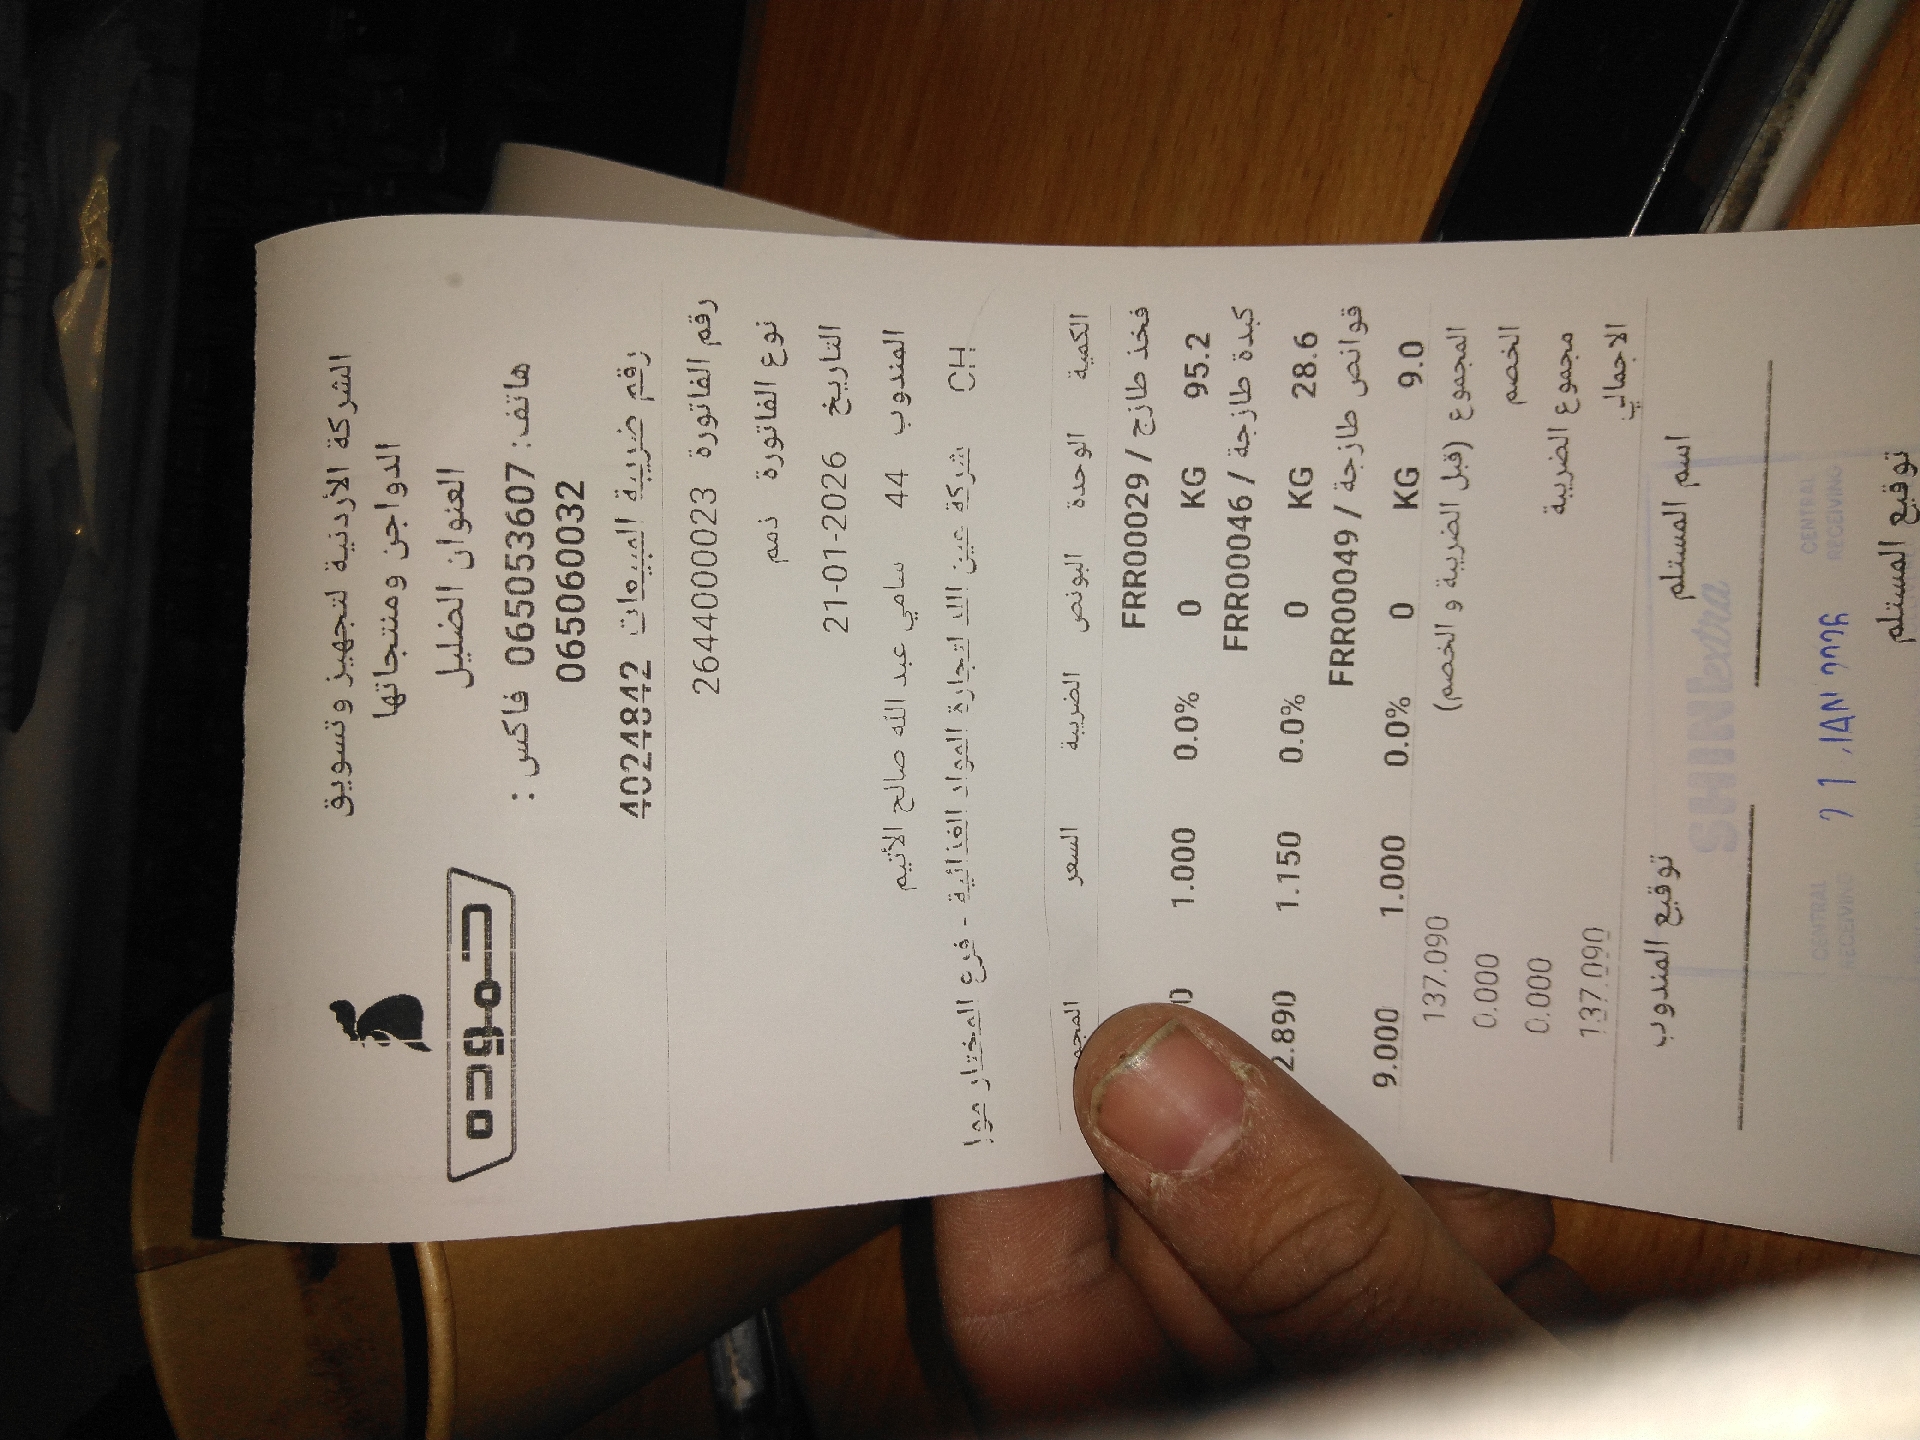 حموده
الشركة الأردنية لتجهيز وتسويق
الدواجن ومنتجاتها
العنوان الضليل
هاتف: 065053607 فاكس :
065060032
رقم ضريبة المبيعات 4024842
رقم الفاتورة 2644000023
نوع الفاتورة ذمم
التاريخ 21-01-2026
المندوب 44 سامي عبد الله صالح الأثيم
CH شركة عين الالا لتجارة المواد الغذائية - فرع المختار مول
الكمية الوحدة البونص الضريبة السعر المجم
فخذ طازج / FRR00029
95.2 KG 0 0.0% 1.000
كبدة طازجة / FRR00046
28.6 KG 0 0.0% 1.150 2.890
قوانص طازجة / FRR00049
9.0 KG 0 0.0% 1.000 9.000
المجموع (قبل الضريبة و الخصم) 137.090
الخصم 0.000
مجموع الضريبة 0.000
الاجمالي 137.090
اسم المستلم توقيع المندوب
SHINextra
CENTRAL RECEIVING 21 JAN 2026 CENTRAL RECEIVING
توقيع المستلم